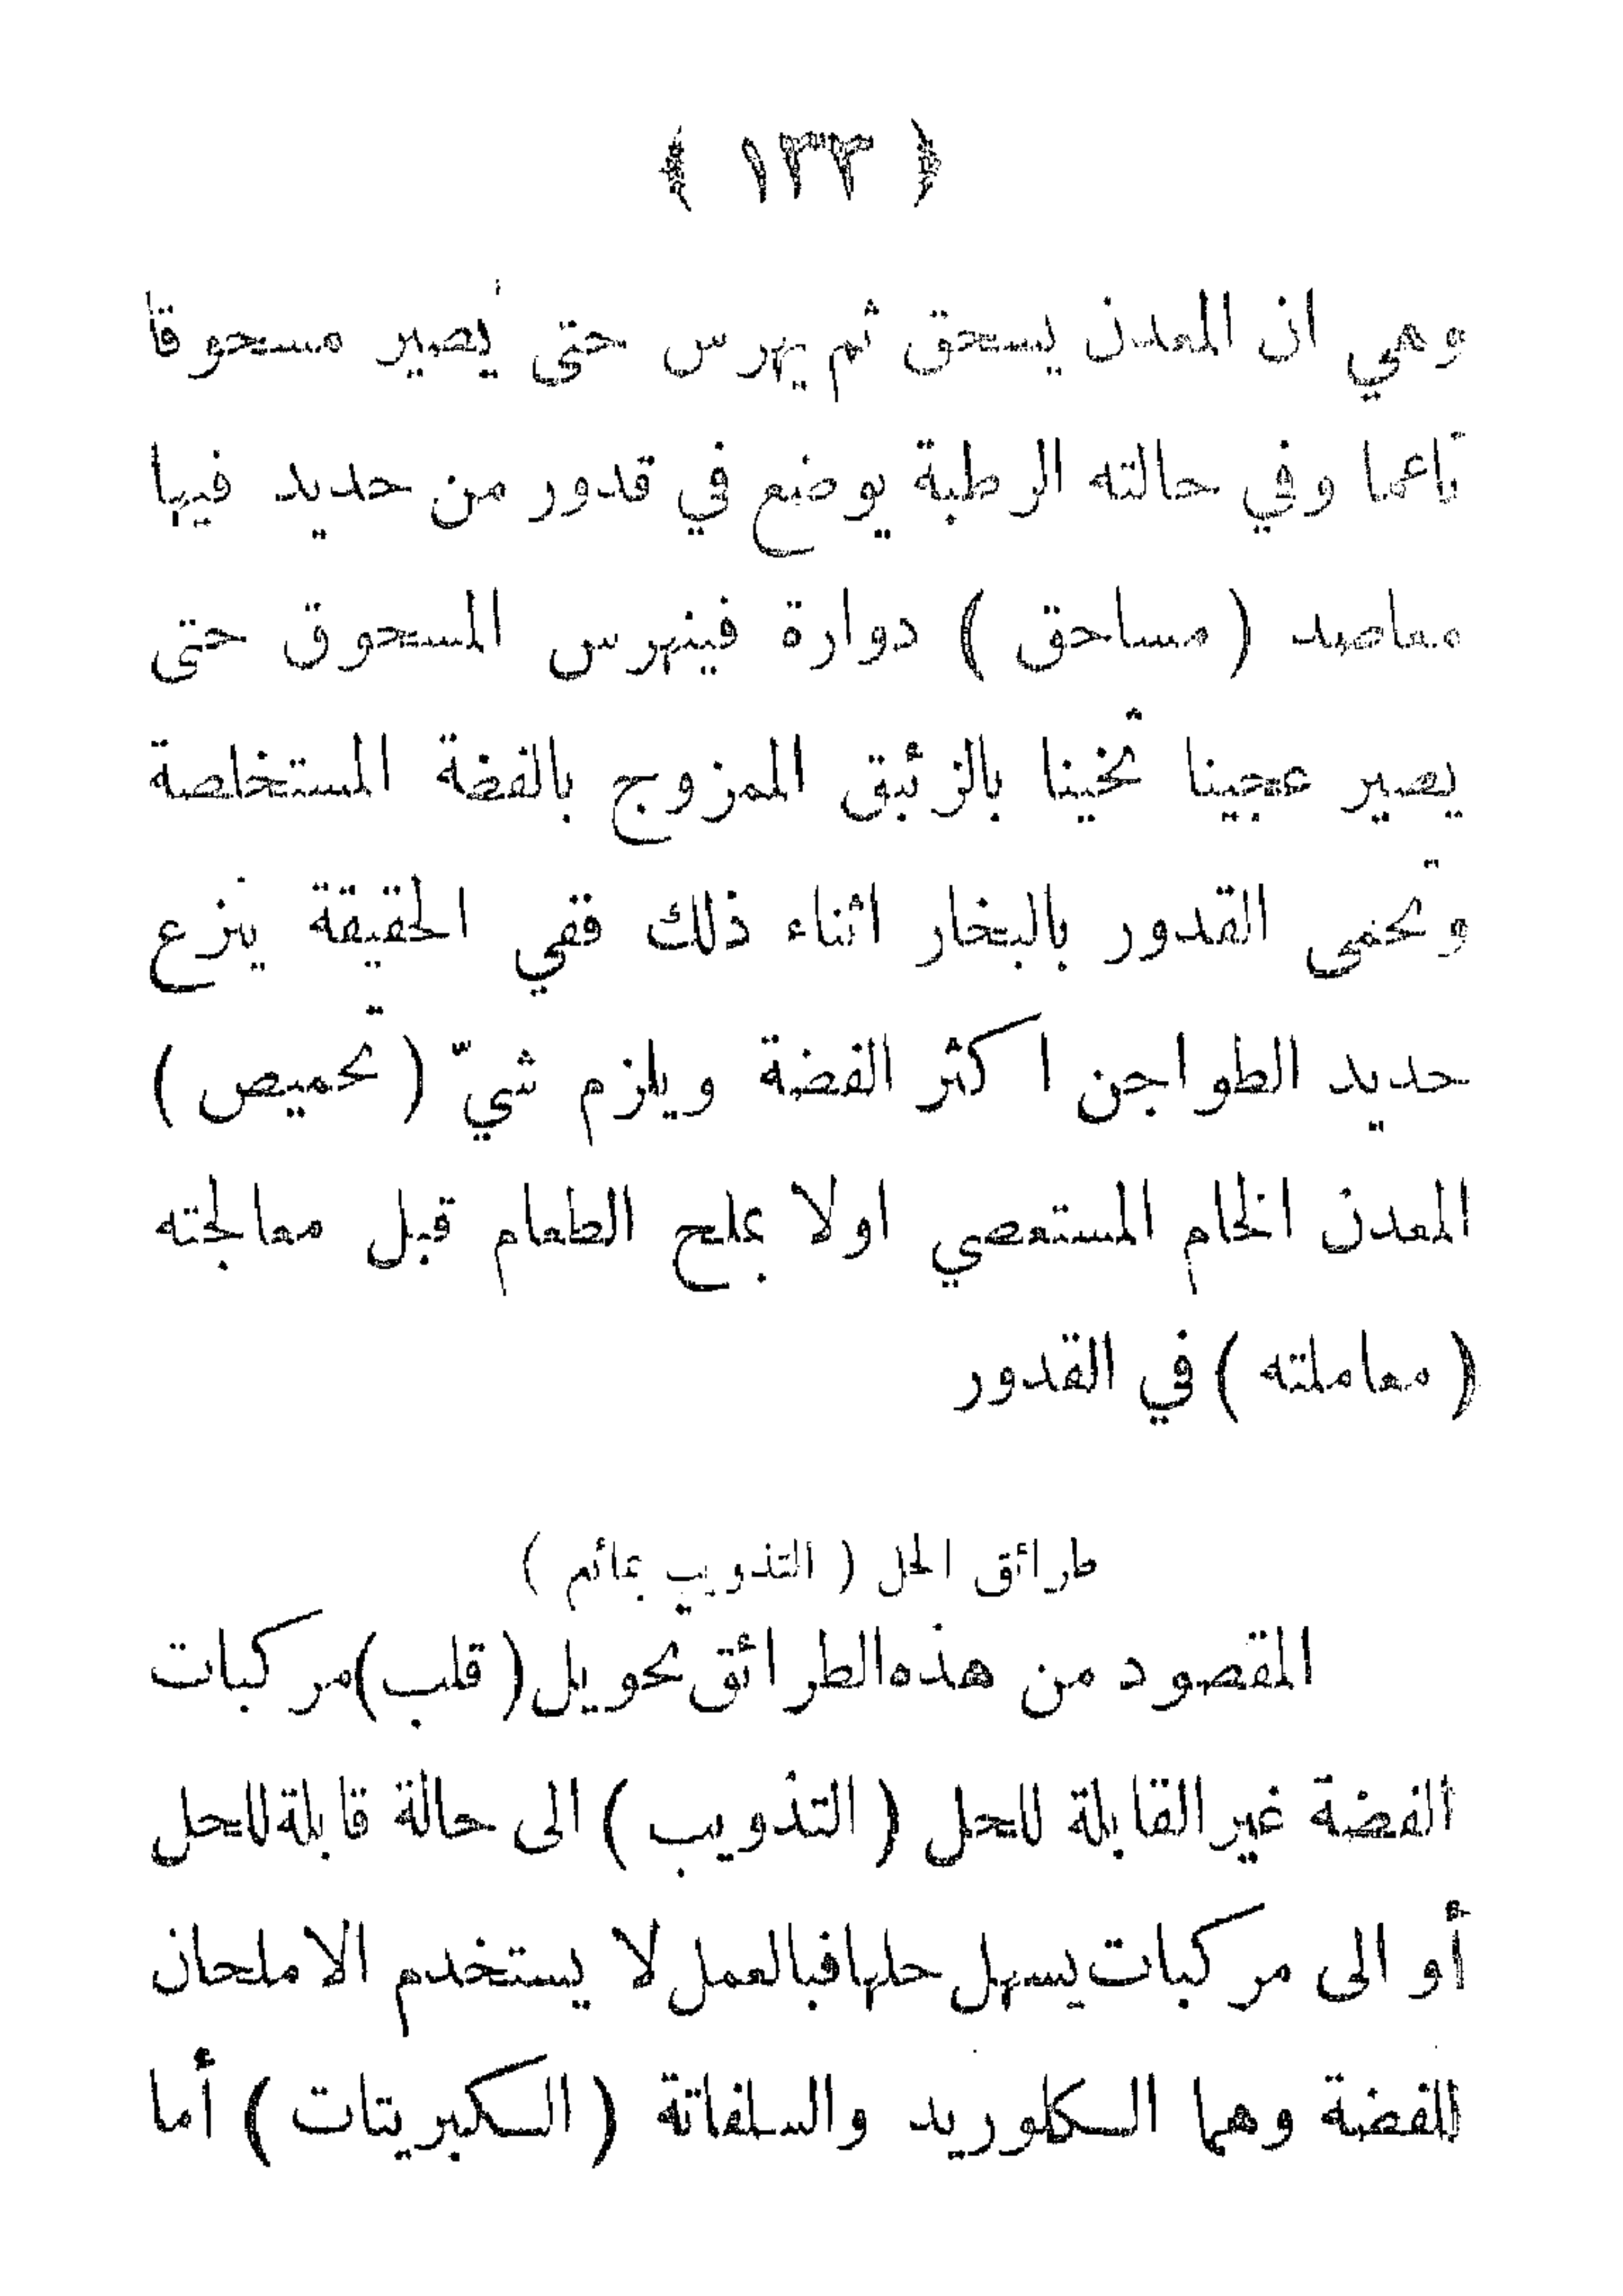 ﴿ ١٣٣ ﴾
وهي ان المعدن يسحق ثم يهرس حتى يصير مسحوقا
ناعما وفي حالته الرطبة يوضع في قدور من حديد فيها
معاصد ( مساحق ) دوارة فينهرس المسحوق حتى
يصير عجينا ثخينا بالزئبق الممزوج بالفضة المستخلصة
وتحمى القدور بالبخار اثناء ذلك ففي الحقيقة ينزع
حديد الطواجن اكثر الفضة ويلزم شيّ ( تحميص )
المعدن الخام المستعصي اولا بملح الطعام قبل معالجته
( معاملته ) في القدور
طرائق الحل ( التذويب بمائع )
المقصود من هذه الطرائق تحويل ( قلب ) مركبات
الفضة غير القابلة للحل ( التذويب ) الى حالة قابلة للحل
أو الى مركبات يسهل حلها فبالعمل لا يستخدم الا ملحان
للفضة وهما الكلوريد والسلفاتة ( الكبريتات ) أما